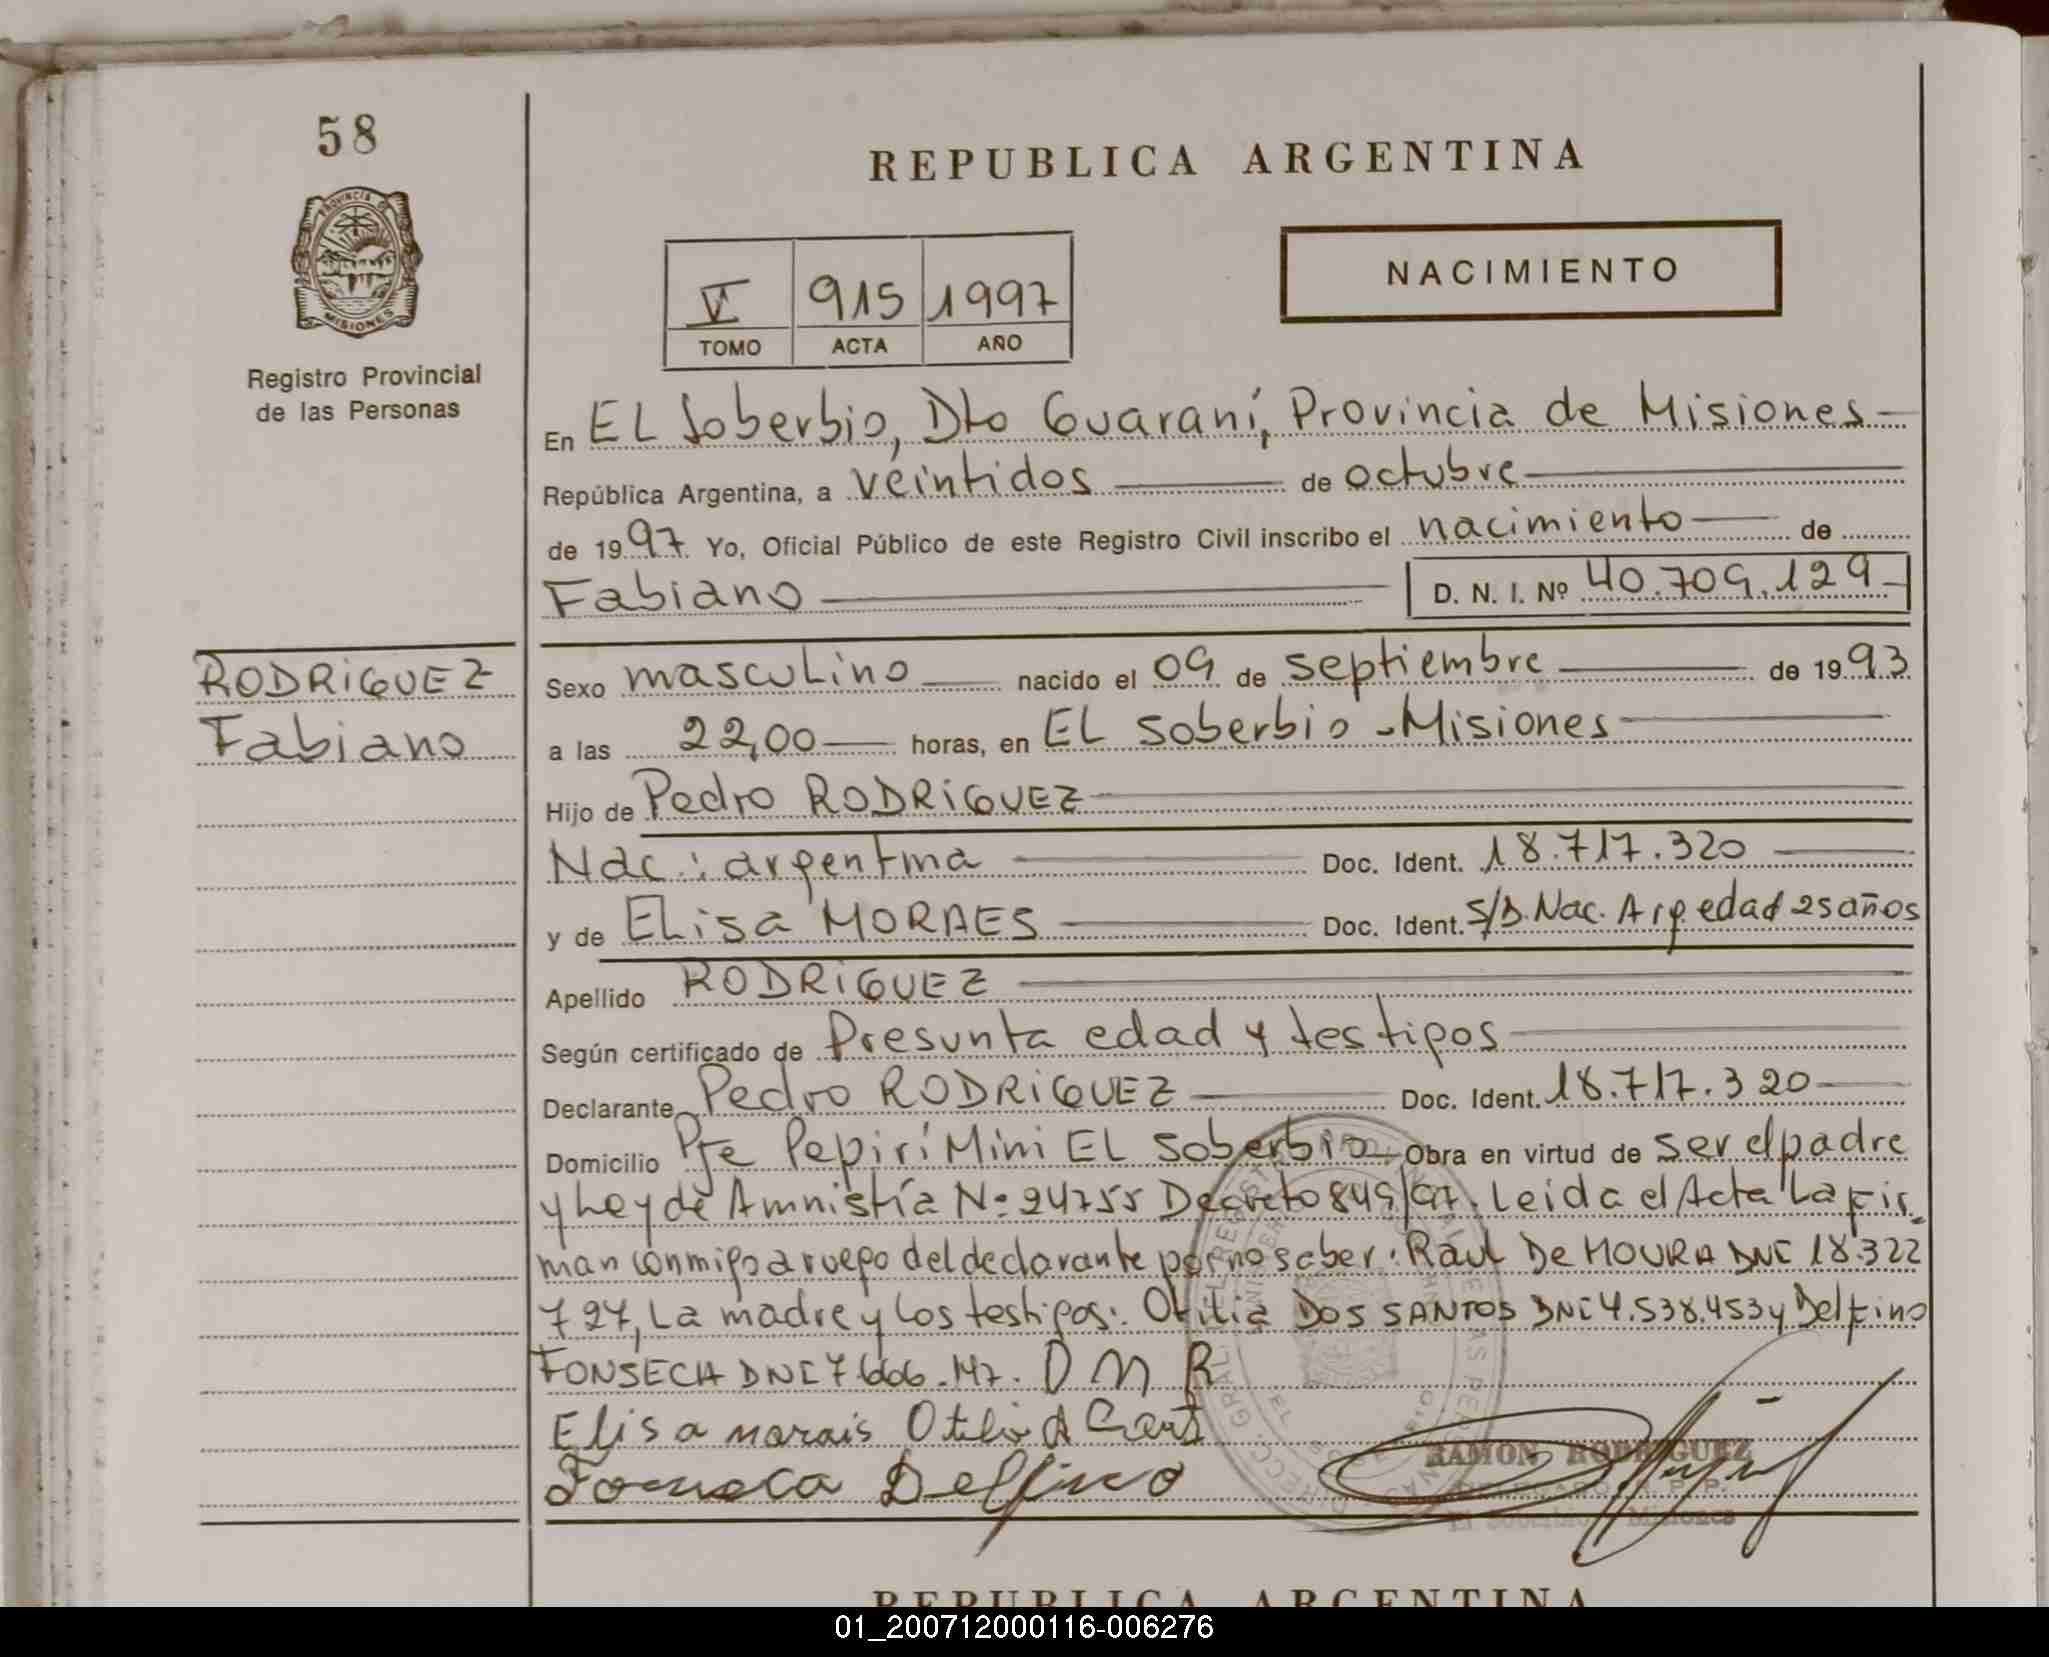 58
PROVINCIA DE
MISIONES
Registro Provincial
de las Personas
REPUBLICA ARGENTINA
NACIMIENTO
V 915 1997
TOMO ACTA AÑO
En EL Soberbio, Dto Guaraní, Provincia de Misiones
República Argentina, a veintidos de octubre
de 1997 Yo, Oficial Público de este Registro Civil inscribo el nacimiento de
Fabiano D. N. I. Nº 40.709.129
RODRIGUEZ
Fabiano
Sexo masculino nacido el 09 de septiembre de 1993
a las 22,00 horas, en EL Soberbio - Misiones
Hijo de Pedro RODRIGUEZ
Nac: argentina Doc. Ident. 18.717.320
y de ELisa MORAES Doc. Ident. S/D. Nac. Arg. edad 25 años
Apellido RODRIGUEZ
Según certificado de Presunta edad y testigos
Declarante Pedro RODRIGUEZ Doc. Ident. 18.717.320
Domicilio Pje Pepirí Miní EL Soberbio Obra en virtud de ser el padre
y Ley de Amnistía Nº 24755 Decreto 849/97. Leida el Acta La fir
man conmigo a ruego del declarante por no saber: Raul De MOURA DNI 18.322
727, La madre y Los testigos: Otilia DOS SANTOS DNI 4.538.453 y Delfino
FONSECA DNI 7.666.147. D M R
Elisa morais Otilia
Fonseca Delfino
RAMON RODRIGUEZ
El Soberbio Misiones
REPUBLICA ARGENTINA
01_200712000116-006276